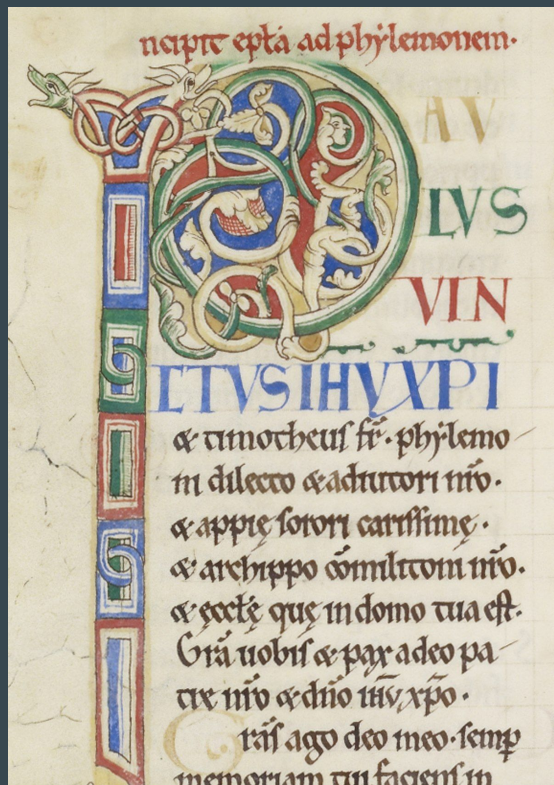 ncipit ep̄ła ad phẏlemonem·
P AV
LVS
VIN
CTVS IHV XPI
& timotheus fr̄· phẏlemo
ni dilecto & adiutori nr̄o·
& appię sorori carissimę·
& archippo cōmilitoni nr̄o·
& ęccłę quę in domo tua est·
Gr̄a uobis & pax a deo pa
tre nr̄o & dn̄o ih̄v xp̄o·
Gr̄as ago deo meo·semꝑ
memoriam tui faciens in